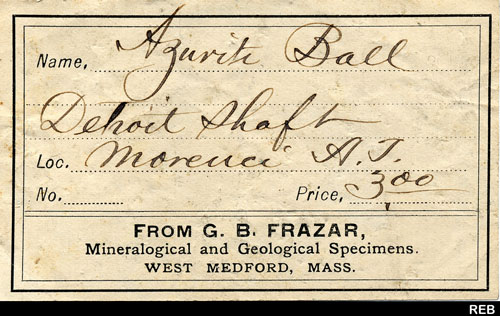 Name, Azurite Ball
Detroit Shaft
Loc. Morenci A.T.
No. Price, 3.00
FROM G. B. FRAZAR,
Mineralogical and Geological Specimens.
WEST MEDFORD, MASS.
REB